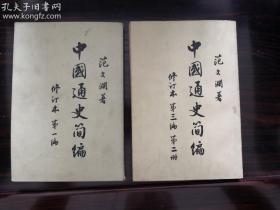 孔夫子旧书网
范文澜著
中國通史简编
修订本 第一编
范文澜著
中國通史简编
修订本 第三编 第二册